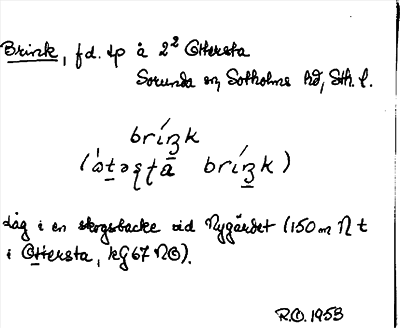 Brink, f.d. tp å 2² Ottersta
Sorunda sn, Sotholms hd, Sth. l.
bríŋk
(ò̀təʂṭa bríŋk)
Låg i en skogsbacke vid Nygärdet (150 m N t
i Ottersta, kg 67 NO).
R.O. 1953